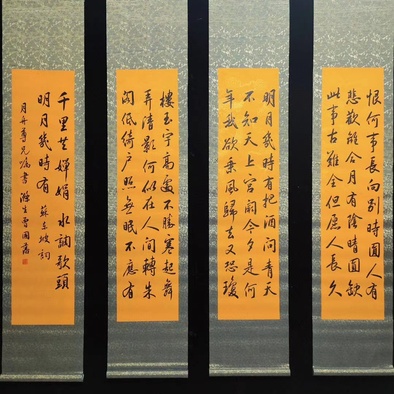 恨何事長向別時圓人有
悲歡離合月有陰晴圓缺
此事古難全但願人長久
明月幾時有把酒問青天
不知天上宮闕今夕是何
年我欲乘風歸去又恐瓊
樓玉宇高處不勝寒起舞
弄清影何似在人間轉朱
閣低綺戶照無眠不應有
千里共嬋娟 水調歌頭
明月幾時有 蘇東坡詞
月舟尊兄屬書 滌生曾國藩